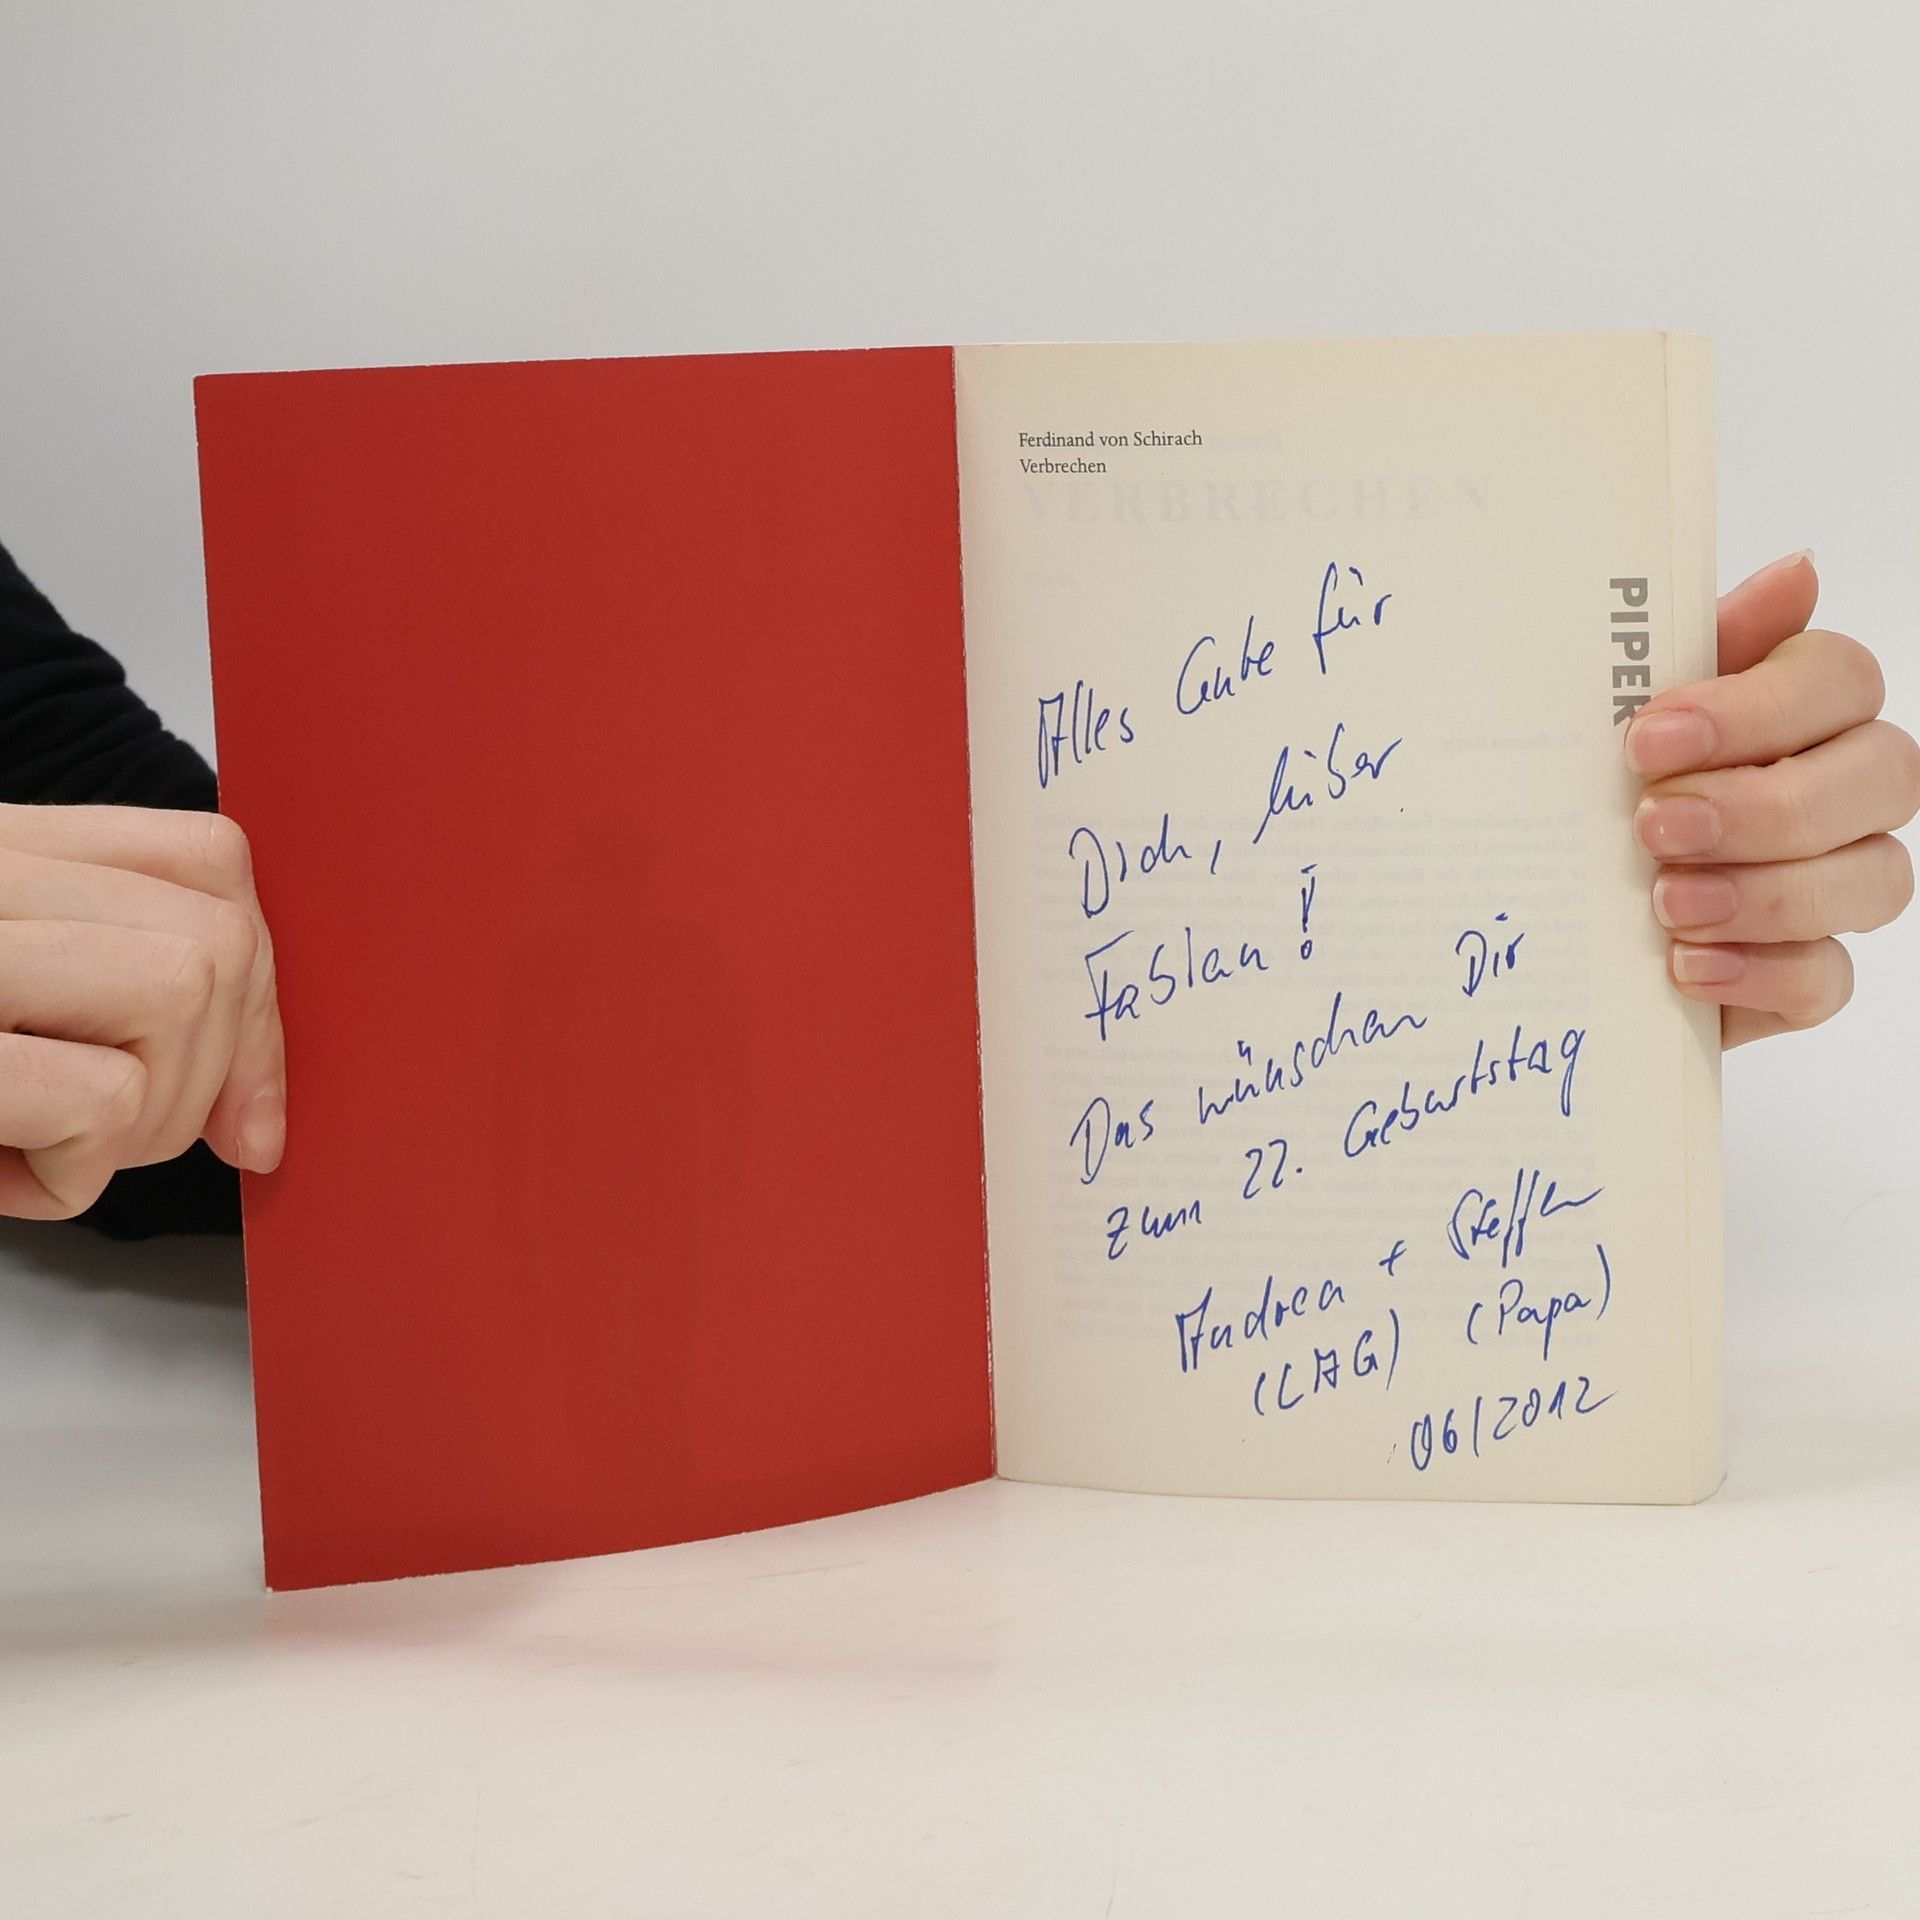 Ferdinand von Schirach
Verbrechen
VERBRECHEN
PIPER
Alles Gute für
Dich, lieber
Fabian!
Das wünschen Dir
zum 22. Geburtstag
Andrea + Steffen
(LAG) (Papa)
06/2012